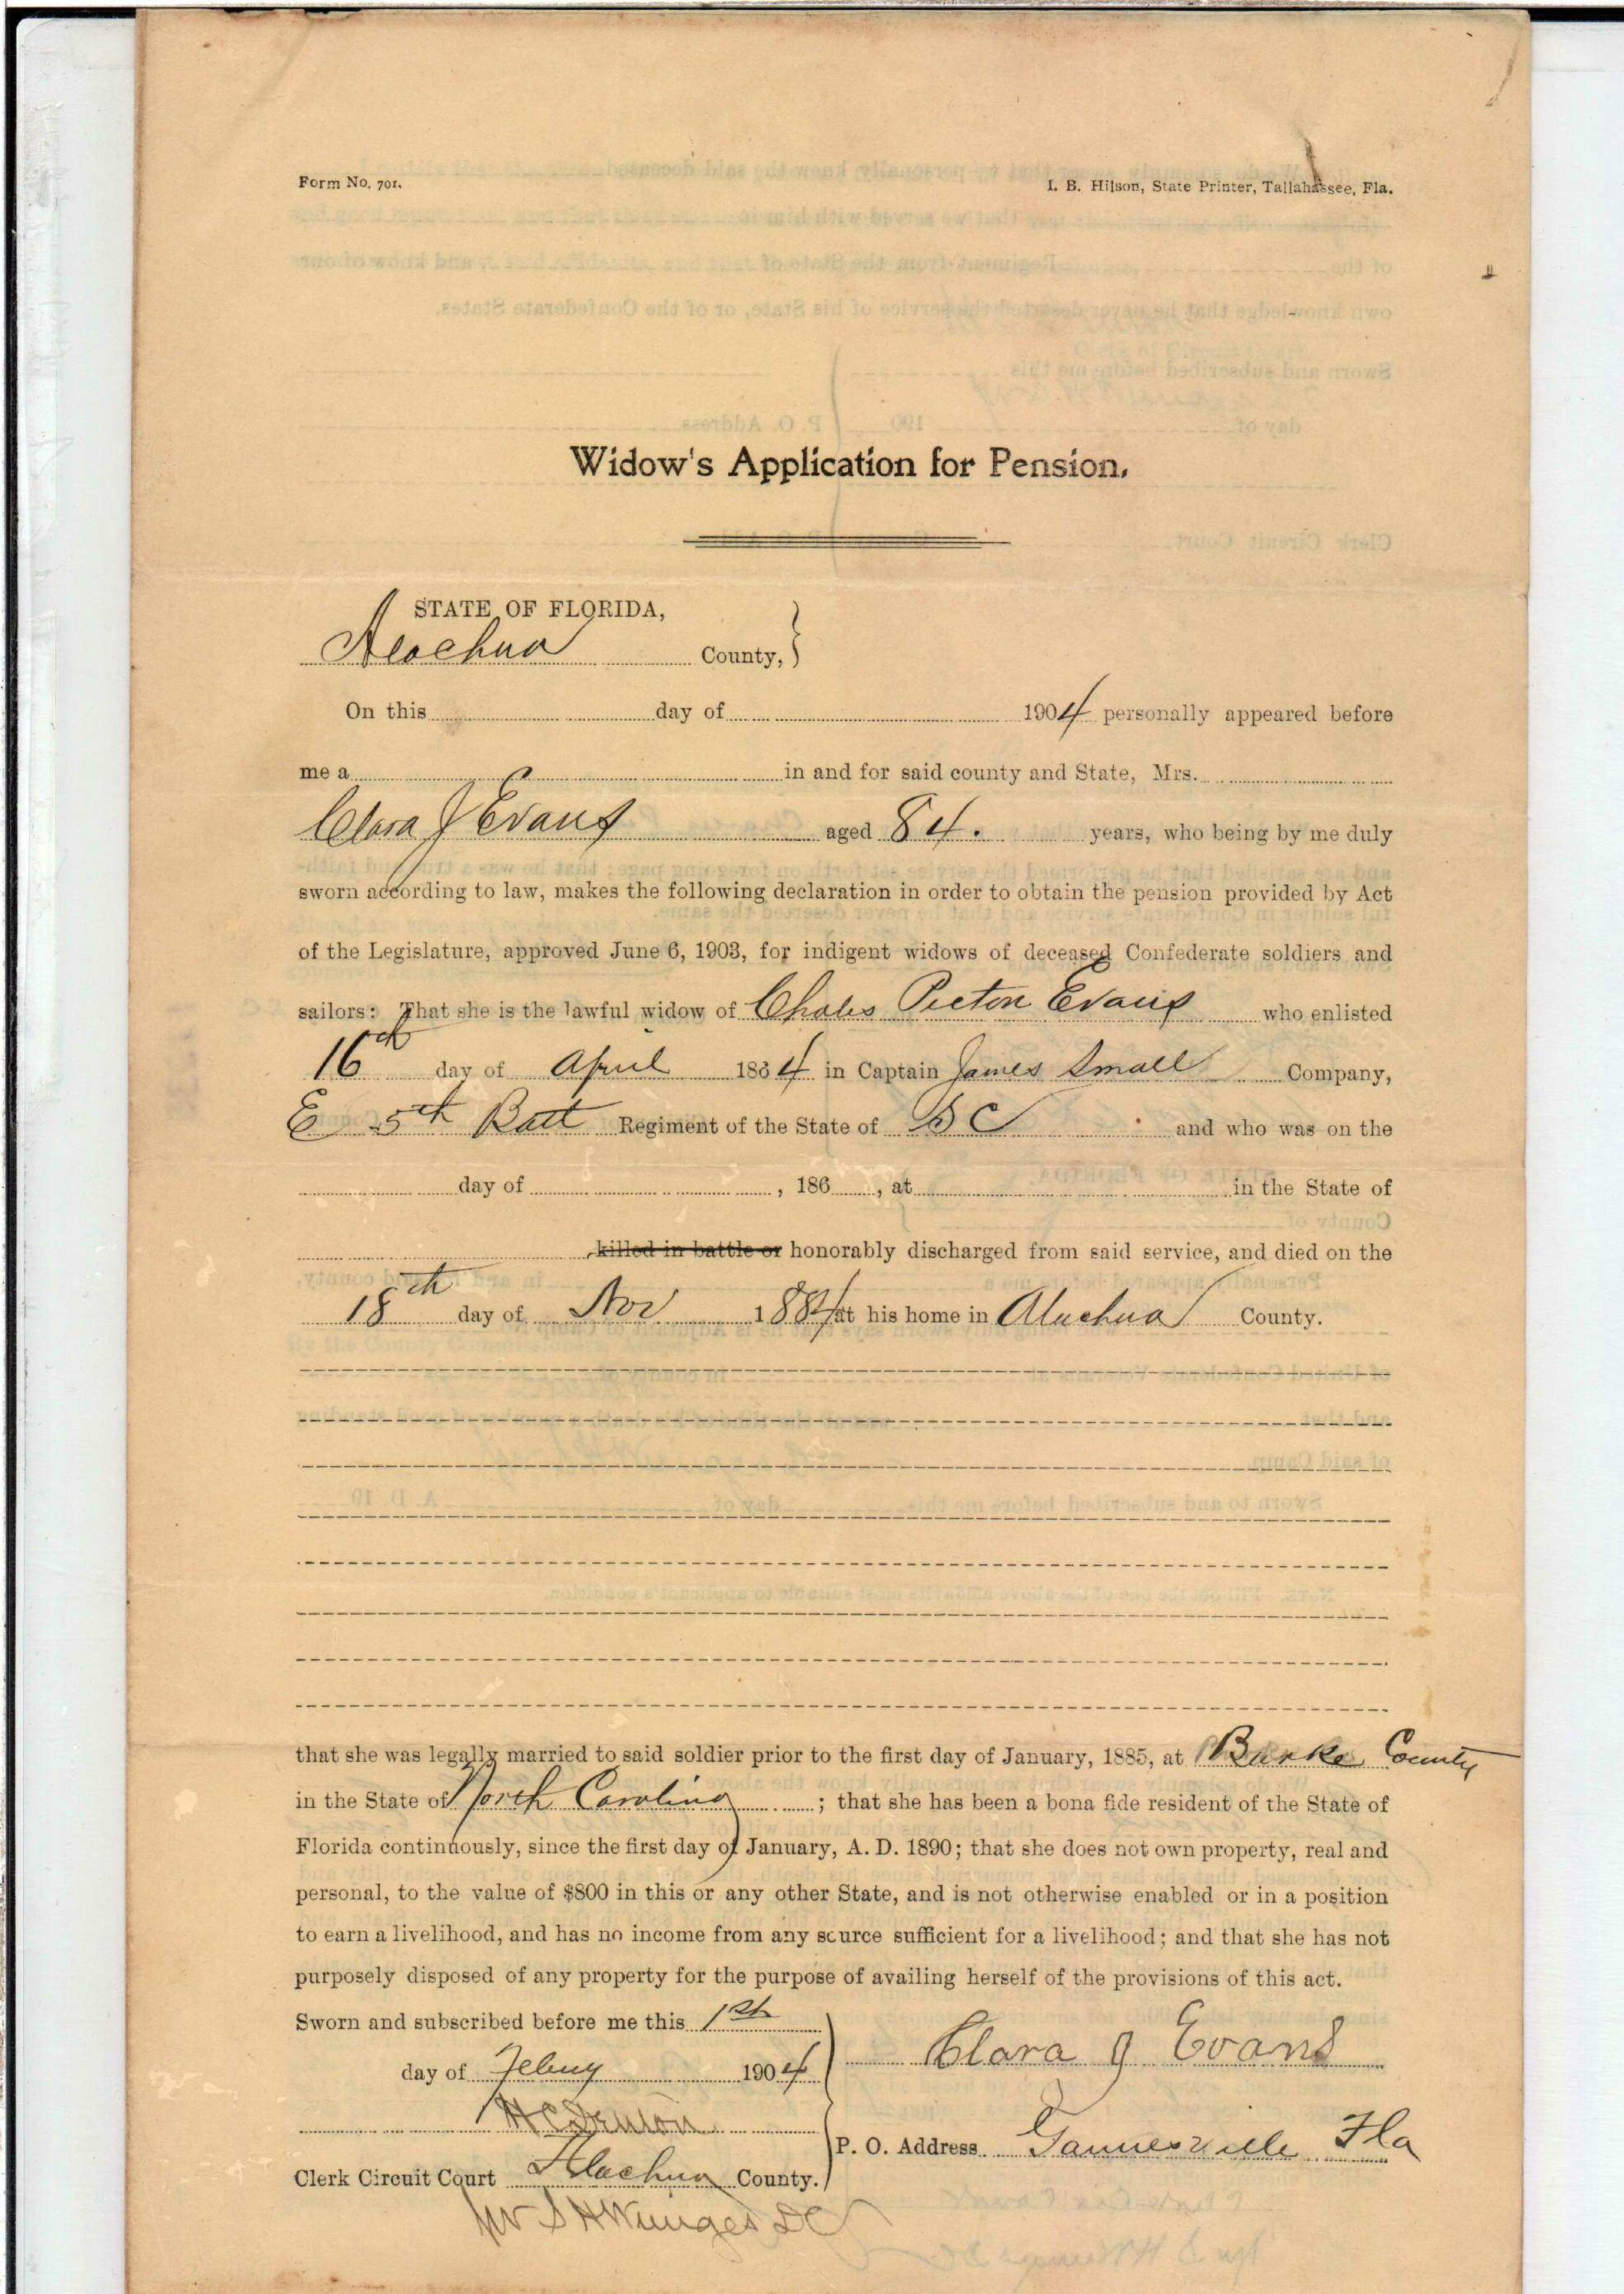 Form No. 701.
I. B. Hilson, State Printer, Tallahassee, Fla.
Widow's Application for Pension.
STATE OF FLORIDA,
Alachua County,
On this day of 1904 personally appeared before
me a in and for said county and State, Mrs.
Clara J Evans aged 84. years, who being by me duly
sworn according to law, makes the following declaration in order to obtain the pension provided by Act
of the Legislature, approved June 6, 1903, for indigent widows of deceased Confederate soldiers and
sailors: That she is the lawful widow of Chales Picton Evans who enlisted
16th day of April 1864 in Captain James Small Company,
E 5th Batt Regiment of the State of S C and who was on the
day of , 186 , at in the State of
killed in battle or honorably discharged from said service, and died on the
18th day of Nov 1884 at his home in Alachua County.
that she was legally married to said soldier prior to the first day of January, 1885, at Burke County
in the State of North Carolina ; that she has been a bona fide resident of the State of
Florida continuously, since the first day of January, A. D. 1890; that she does not own property, real and
personal, to the value of $800 in this or any other State, and is not otherwise enabled or in a position
to earn a livelihood, and has no income from any source sufficient for a livelihood; and that she has not
purposely disposed of any property for the purpose of availing herself of the provisions of this act.
Sworn and subscribed before me this 1st
day of Febuy 1904
Clara J Evans
H C Denton
P. O. Address Gainesville Fla
Clerk Circuit Court Alachua County.
S H Wienges DC